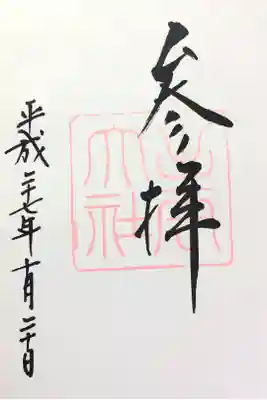 参拝
平成二十七年十月二十日
大社